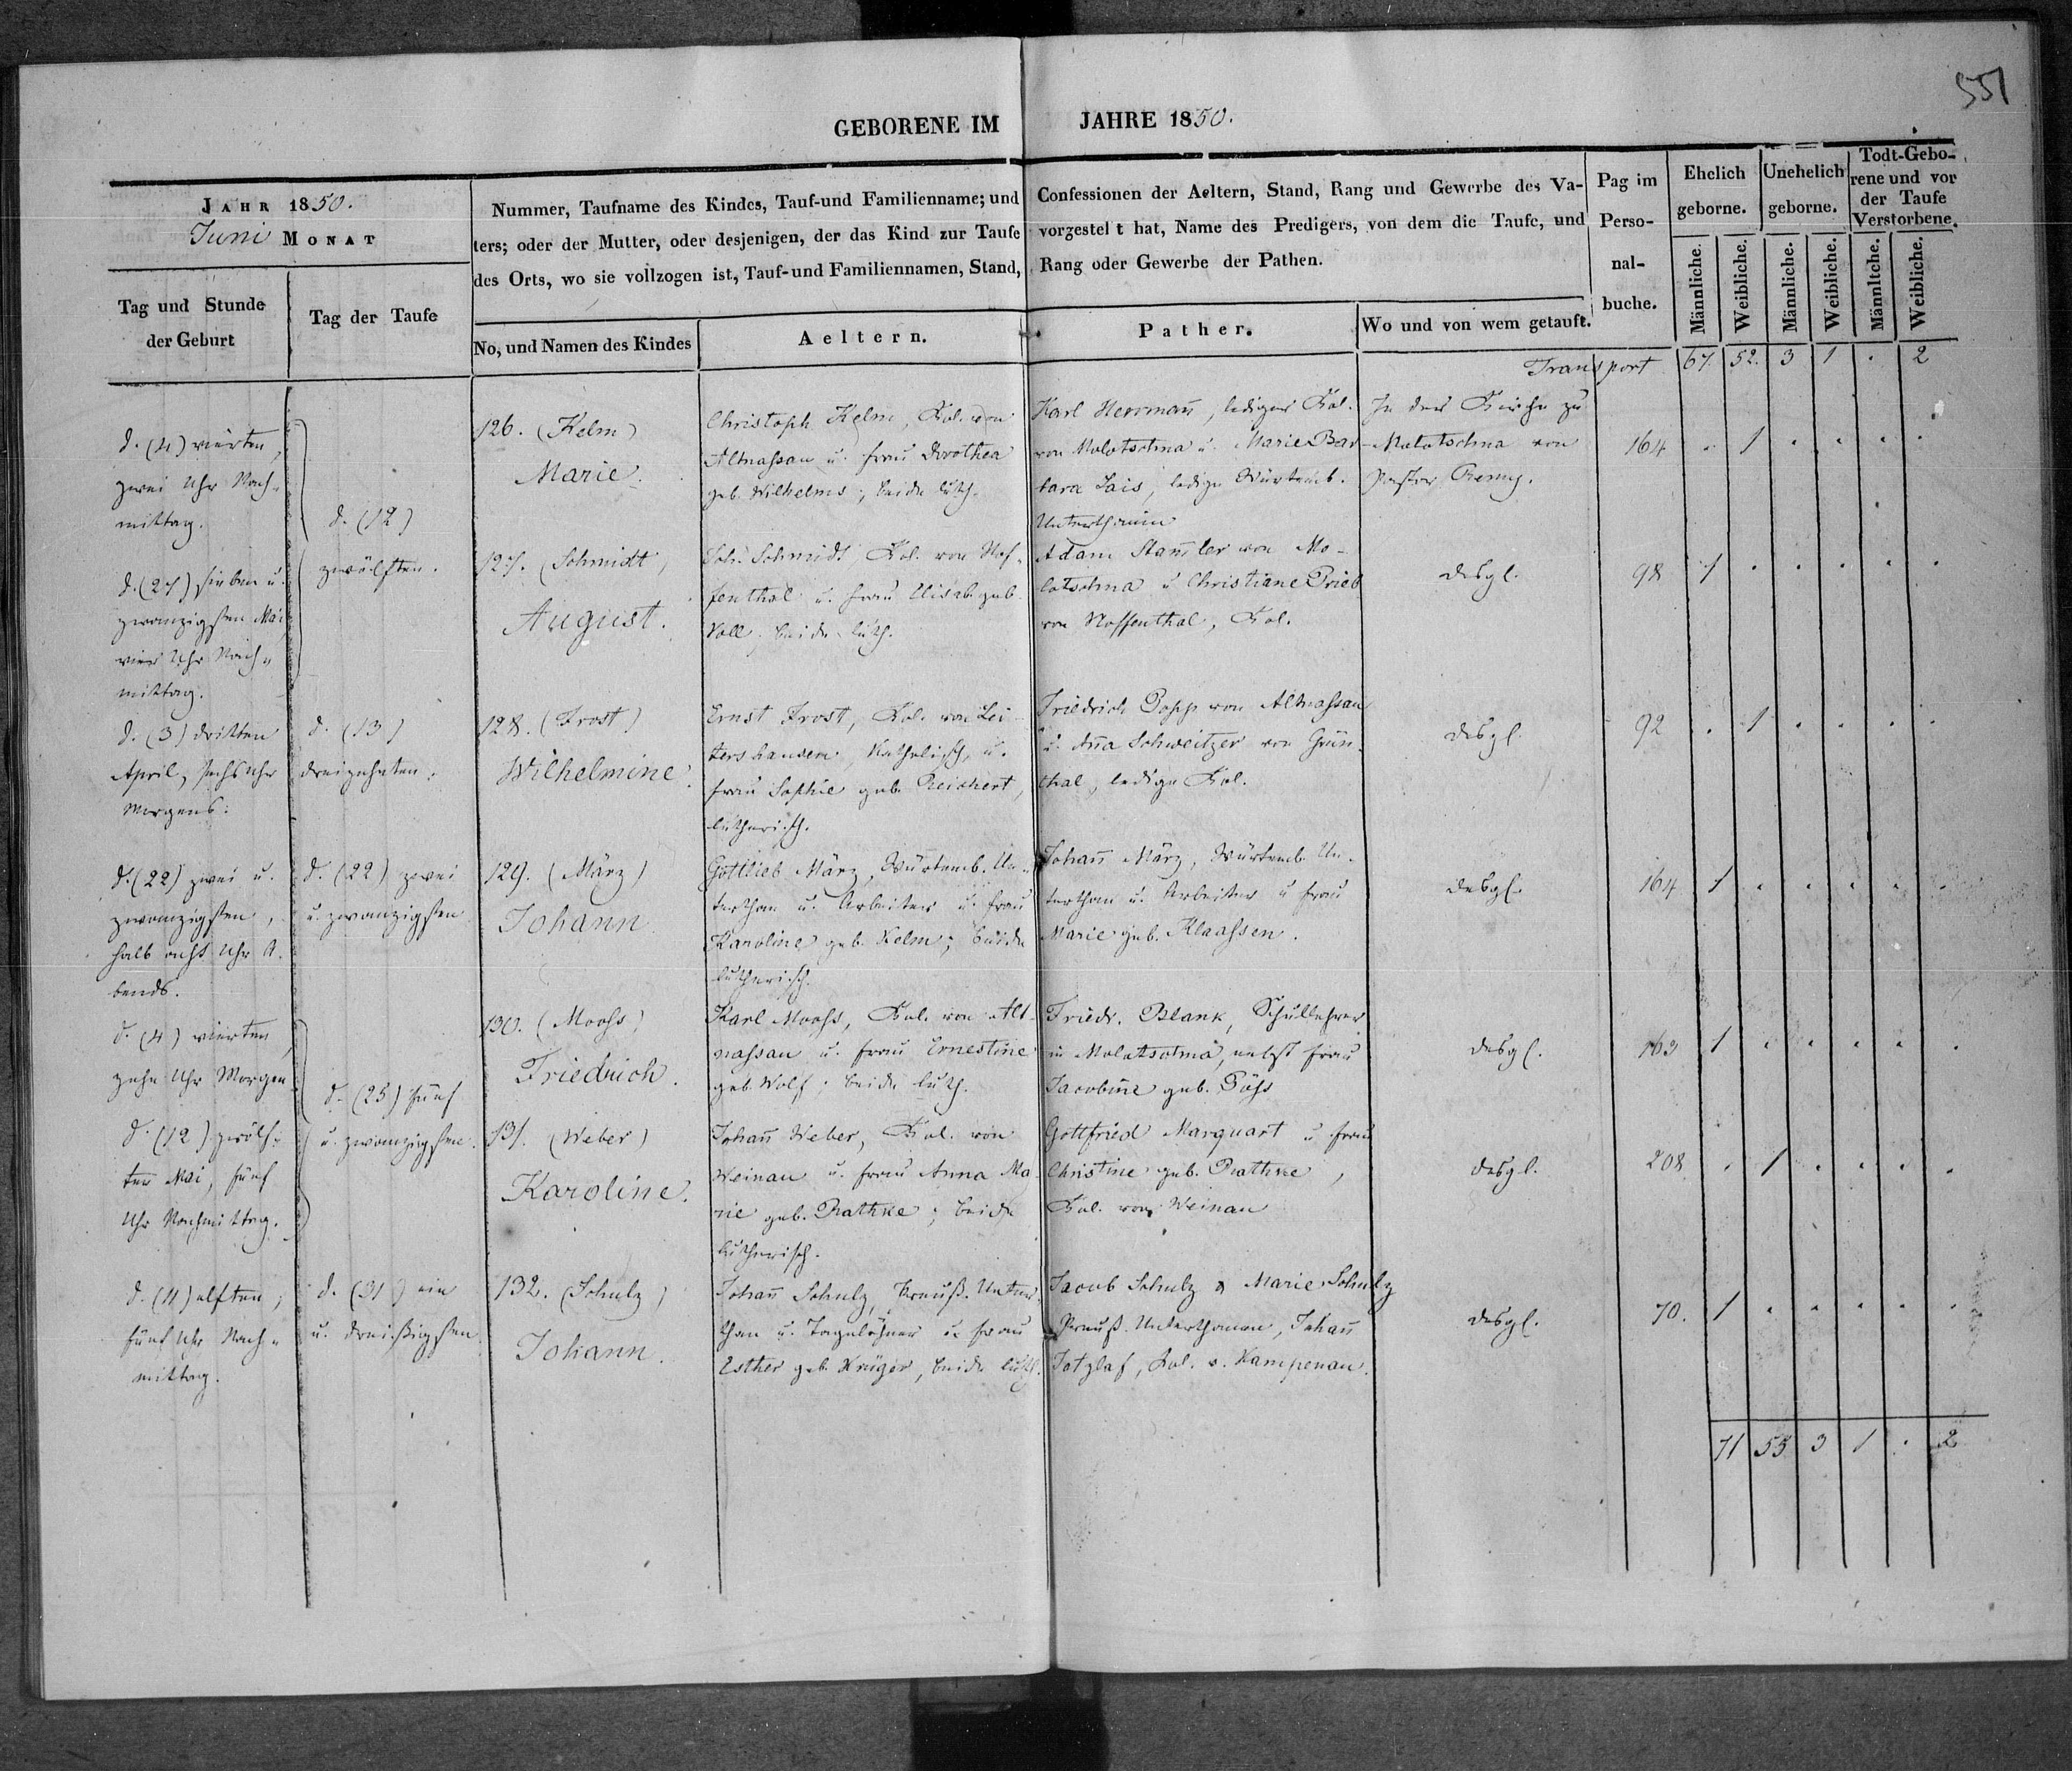 551
GEBORENE IM JAHRE 1850.
JAHR 1850.
Juni MONAT
Tag und Stunde
der Geburt
Tag der Taufe
Nummer, Taufname des Kindes, Tauf-und Familienname; und Confessionen der Aeltern, Stand, Rang und Gewerbe des Va-
ters; oder der Mutter, oder desjenigen, der das Kind zur Taufe vorgestel t hat, Name des Predigers, von dem die Taufe, und
des Orts, wo sie vollzogen ist, Tauf-und Familiennamen, Stand, Rang oder Gewerbe der Pathen.
No, und Namen des Kindes
Aeltern.
Pather.
Wo und von wem getauft.
Pag im
Perso-
nal-
buche.
Ehelich
geborne.
Unehelich
geborne.
Todt-Gebo-
rene und vor
der Taufe
Verstorbene.
Männliche.
Weibliche.
Männliche.
Weibliche.
Männltche.
Weibliche.
Transport 67. 52. 3 1 . 2
d. (4) vierten,
zwei Uhr Nach-
mittag.
d. (12)
zwölften.
126. (Kelm)
Marie.
Christoph Kelm, Kol. von
Altnassau u. Frau Dorothea
geb. Wilhelms; beide luth.
Karl Herrmann, lediger Kol.
von Molotschna u. Marie Bar-
bara Sais, ledige Würtemb.
Unterthanin
In der Kirche zu
Molotschna von
Pastor
164 . 1 . . . .
d. (27) sieben u.
zwanzigsten Mai
vier Uhr Nach-
mittag.
127. (Schmidt)
August.
Joh. Schmidt Kol. von Hof-
fenthal u. Frau Elisab. geb.
Voll, beide luth.
Adam Stammler von Mo-
lotschna u. Christiane Prieb
von Hoffenthal, Kol.
desgl.
98 1 . . . . .
d. (3) dritten
April, sechs Uhr
Morgens.
d. (13)
dreizehnten.
128. (Frost)
Wilhelmine.
Ernst Frost, Kol. von Lei-
tershausen, Katholisch, u.
Frau Sophie geb. Reichert,
lutherisch.
Friedrich Popp von Altnassau
u. Anna Schweitzer von Grün-
thal, ledige Kol.
desgl.
92 . 1 . . . .
d. (22) zwei u.
zwanzigsten,
halb acht Uhr A-
bends.
d. (22) zwei
u. zwanzigsten
129. (März)
Johann
Gottlieb März, Würtemb. Un-
terthan u. Arbeiter u. Frau
Karoline geb. Kelm; beide
lutherisch.
Johann März, Würtemb. Un-
terthan u. Arbeiter u Frau
Marie geb. Klaassen.
desgl.
164. 1 . . . . .
d. (4) vierten,
zehn Uhr Morgen
d. (25) fünf
u. zwanzigsten.
130. (Moohs)
Friedrich.
Karl Moohs, Kol. von Alt-
nassau u. Frau Ernestine
geb. Wolf; beide luth.
Friedr. Blank, Schullehrer
in Molotschna, nebst Frau
Jacobine geb.
desgl.
163 1 . . . . .
d. (12) zwölf-
ter Mai, fünf
Uhr Nachmittag.
131. (Weber)
Karoline.
Johann Weber, Kol. von
Weinau u. Frau Anna Ma-
rie geb. Rathke; beide
lutherisch.
Gottfried Marquart u Frau
Christine geb. Rathke,
Kol. von Weinau
desgl.
208 . 1 . . . .
d. (11) elften,
fünf Uhr Nach-
mittag.
d. (31) ein
u. dreißigsten
132. (Schulz)
Johann.
Johann Schulz, Preuß. Unter-
than u. Tagelöhner u. Frau
Esther geb. Krüger, beide luth.
Jacob Schulz & Marie Schulz
Preuß. Unterthanen, Johann
Totzlaf, Kol. v. Kampenau.
desgl.
70. 1 . . . . .
71 55 3 1 . 2